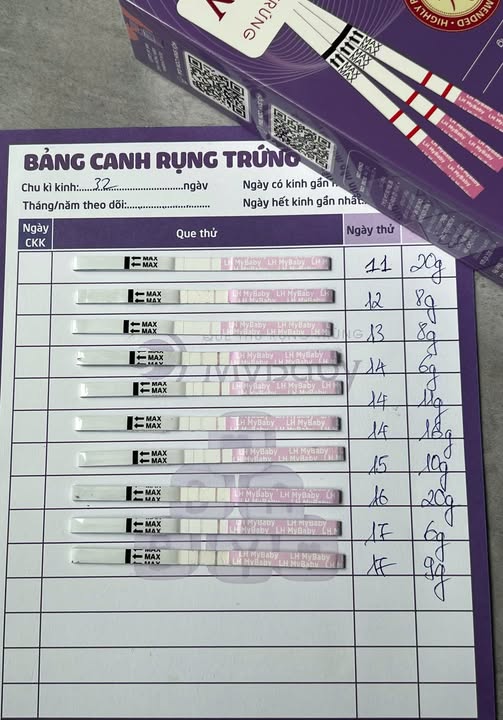 TRỨNG
MMENDED • HIGHLY R
LH MyBaby LH MyBaby
BẢNG CANH RỤNG TRỨNG
Chu kì kinh: 32 ngày
Ngày có kinh gần
Tháng/năm theo dõi:
Ngày hết kinh gần nhất:
Ngày CKK Que thử Ngày thử
MAX MAX LH MyBaby LH MyBaby LH 11 20g
MAX MAX LH MyBaby LH MyBaby 12 8g
MAX MAX LH MyBaby LH MyBaby 13 8g
QUE THỬ RỤNG TRỨNG
MAX MAX LH MyBaby LH MyBaby 14 6g
MyBaby
MAX MAX LH MyBaby LH MyBaby 14 11g
MAX MAX LH MyBaby LH MyBaby 14
MAX MAX LH MyBaby LH MyBaby 15 10g
MAX MAX LH MyBaby LH MyBaby 16 20g
MAX MAX LH MyBaby LH MyBaby 17 6g
MAX MAX LH MyBaby LH MyBaby 17 9g